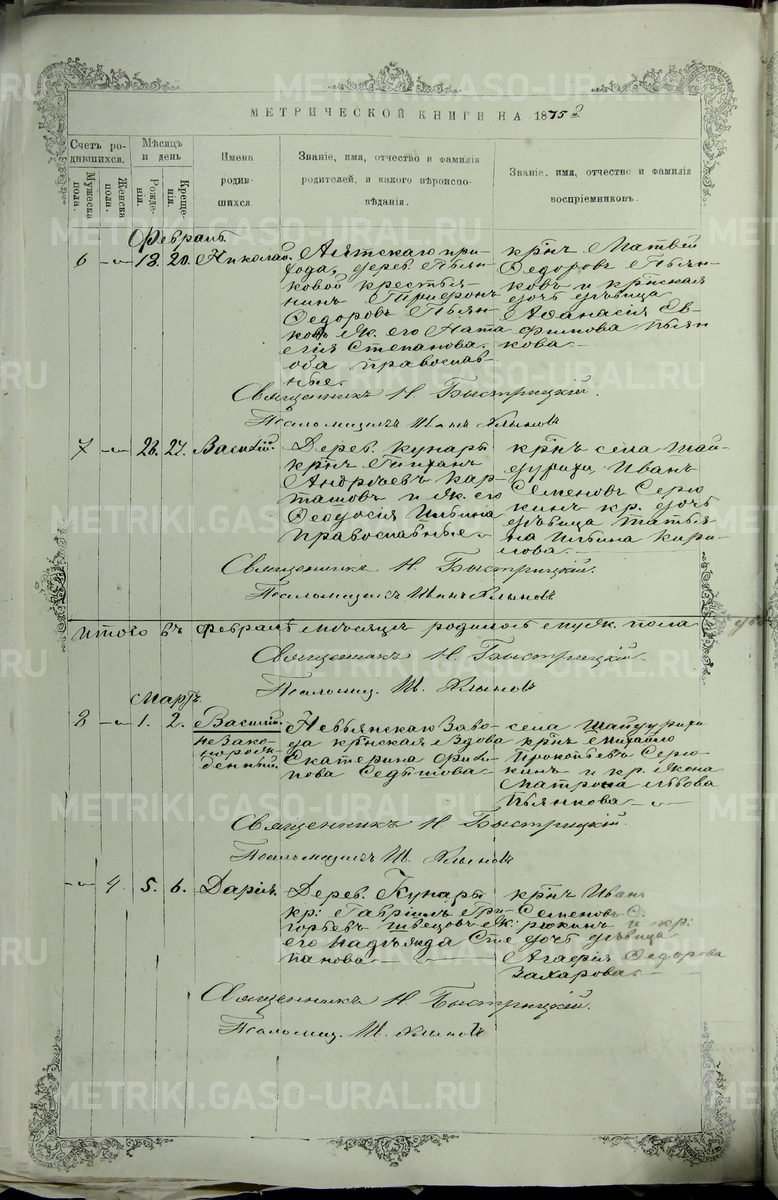 МЕТРИЧЕСКОЙ КНИГИ НА 1875
Счетъ родившихся.
Мужеска пола.
Женска пола.
Мѣсяцъ и день
Рожденія.
Крещенія.
Имена родившихся.
Званіе, имя, отчество и фамилія родителей, и какого вѣроисповѣданія.
Званіе, имя, отчество и фамилія воспріемниковъ.
Февраль
6 -„- 18. 20. Николай.
Аятскаго при-
хода, дерев. Пьян-
ковой крестья-
нинъ Трифонъ
Ѳедоровъ Пьян-
ковъ и ж. его Ната
лія Степанова.
оба православ-
ные.
крн. Матвей
Ѳедоровъ Пьян-
ковъ и крнская
дочь дѣвица
Аѳанасія Ев-
фимова Пьян
кова.
Священникъ Н. Быстрицкій.
Псаломщикъ Иванъ
7 -„- 26. 27. Василій.
Дерев. Кунары
крнъ
Андреевъ Кар-
ташовъ и ж. его
Ѳеодосія Ильина
православные
крнъ села Шай-
дурихи Иванъ
Семеновъ Серю
кинъ кр. дочь
дѣвица Татья-
на Ильина Кири-
лова.
Священникъ Н. Быстрицкій.
Псаломщикъ Иванъ
Итого въ Февралѣ мѣсяцѣ родилось муж. пола
Священникъ Н. Быстрицкій.
Псаломщ. И.
Мартъ
8 -„- 1. 2. Василій.
незако-
норож-
денный.
Невьянскаго Заво-
да крнская вдова
Екатерина
пова Седышова
села Шайдурихи
крнъ Михайло
Прокопьевъ Серю-
кинъ и кр. жена
Матрона Львова
Пьянкова
Священникъ Н. Быстрицкій.
Псаломщикъ И.
-„- 4. 5. 6. Дарія.
Дерев. Кунары
кр: Гавріилъ Гри-
горьевъ Швецовъ ж:
его Надѣжда Сте
панова
крнъ Иванъ
Семеновъ С.
рюкинъ и кр:
дочь дѣвица
Агафія Ѳедорова
Захарова.
Священникъ Н. Быстрицкій.
Псаломщ. И.
METRIKI.GASO-URAL.RU